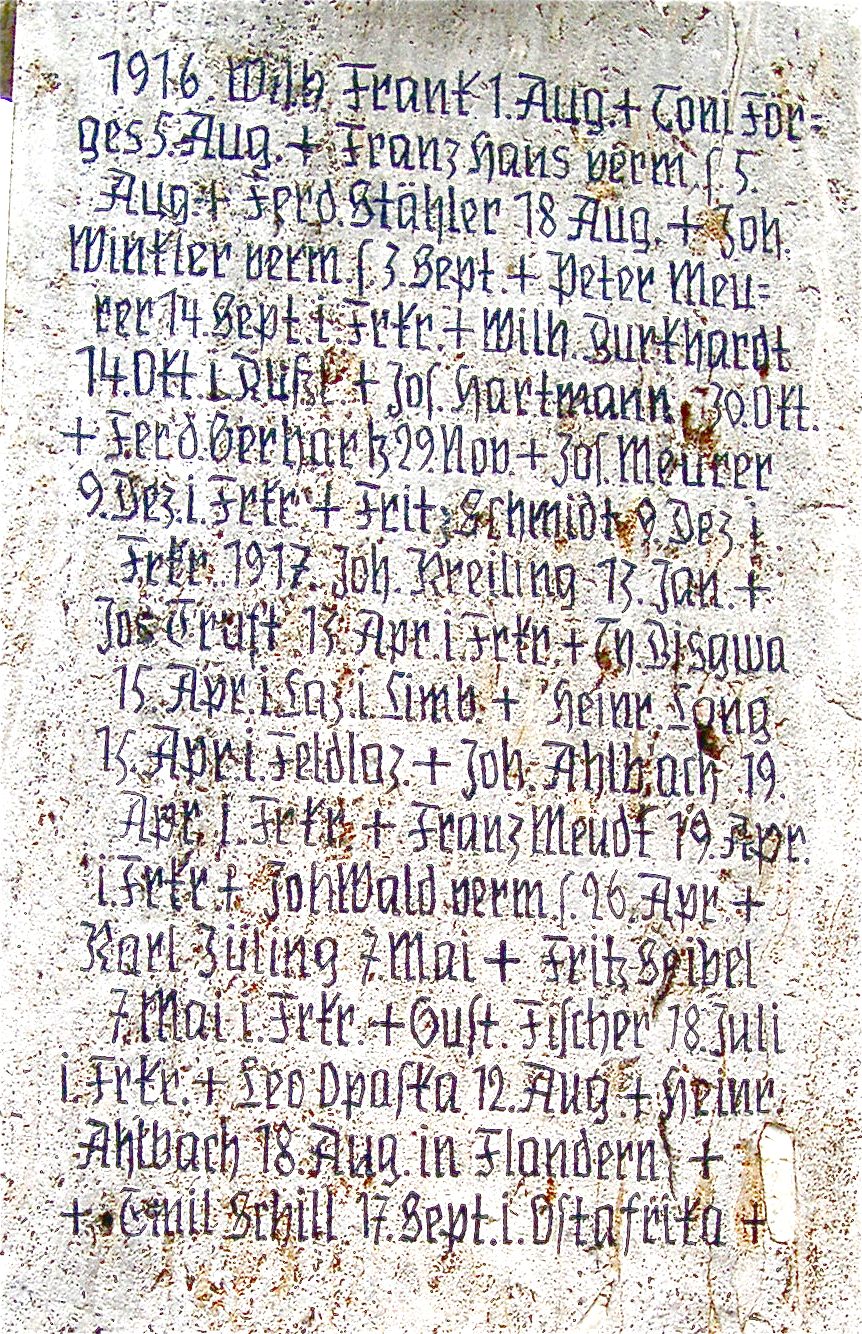 1916. Wilh. Frank 1. Aug. + Toni För=
ges 5. Aug. + Franz Hans verm. ſ. 5.
Aug. + Ferd. Stähler 18 Aug. + Joh.
Winkler verm. ſ. 3. Sept. + Peter Meu=
rer 14. Sept. i. Frkr. + Wilh. Burkhardt
14. Okt. i. Rußl. + Joſ. Hartmann 30. Okt.
+ Ferd. Gerhartz 29. Nov. + Joſ. Meurer
9. Dez. i. Frkr. + Fritz Schmidt 9. Dez. i.
Frkr. 1917. Joh. Kreiling 13. Jan. +
Jos Truft 15. Apr. i. Frkr. + Th. Disqwa
15. Apr. i. Laz. i. Limb. + Heinr. Lang
15. Apr. i. Feldlaz. + Joh. Ahlbach 19.
Apr. i. Frkr. + Franz Meudt 19. Apr.
i. Frkr. + Joh Wald verm. ſ. 26. Apr. +
Karl Züling 7. Mai + Fritz Seibel
7. Mai i. Frkr. + Guſt. Fiſcher 18. Juli
i. Frkr. + Leo Opaſka 12. Aug. + Heinr.
Ahlbach 18. Aug. in Flandern +
+ Emil Schill 17. Sept. i. Oſtafrika +